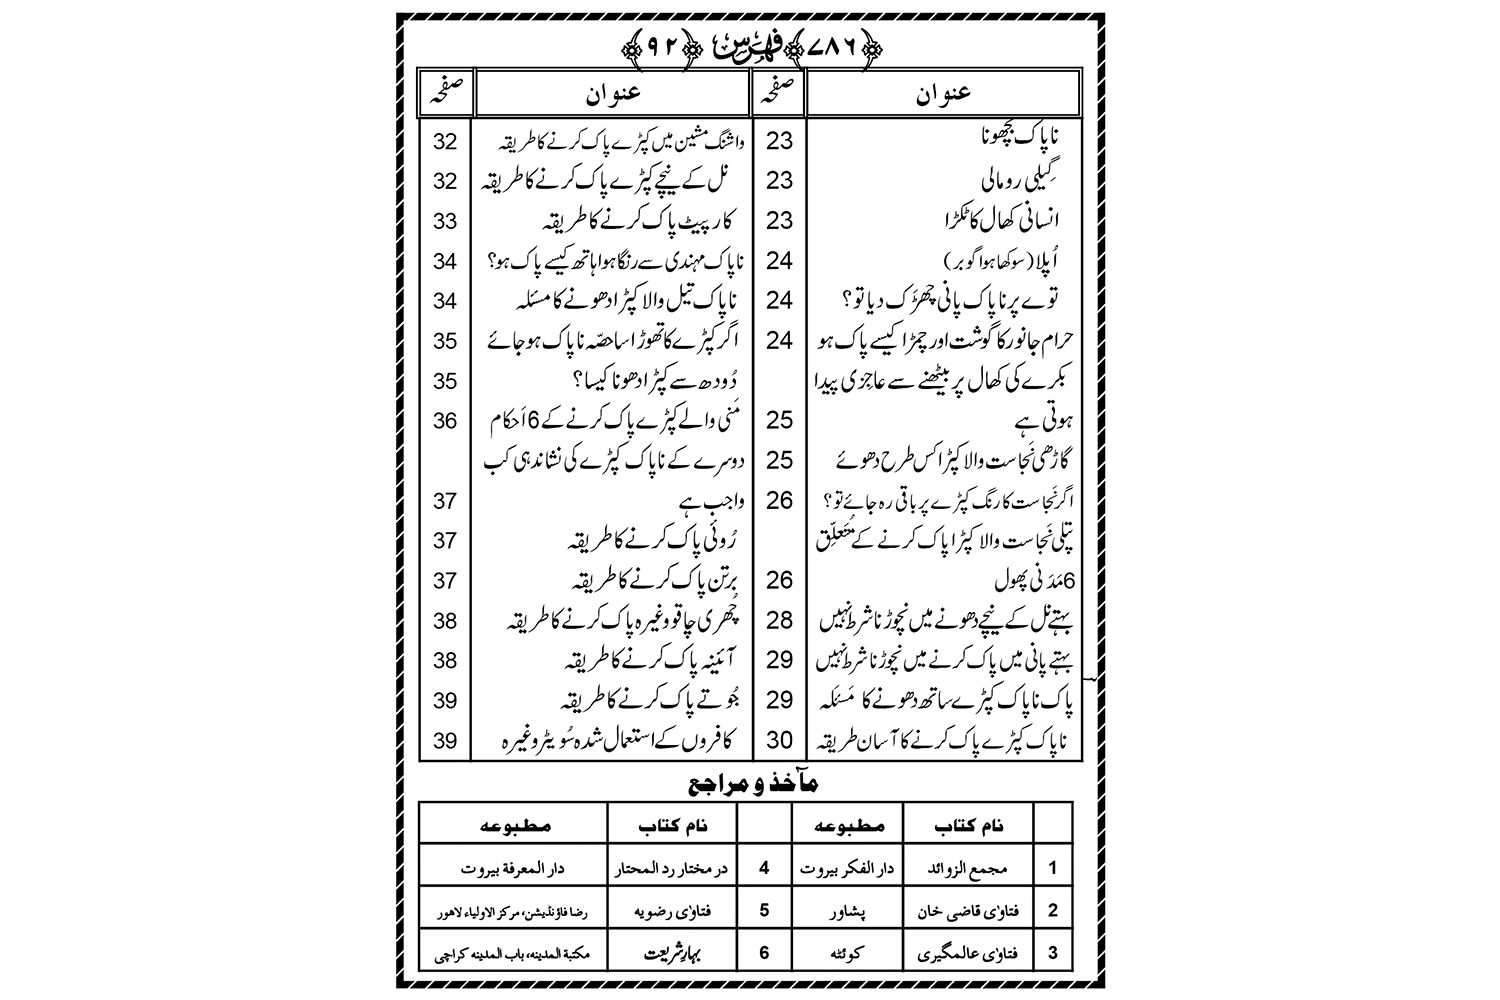 ﴿۷۸۶﴾ فہرس ﴿۹۲﴾
عنوان صفحہ عنوان صفحہ
ناپاک بچھونا 23
گِیلی رومالی 23
انسانی کھال کا ٹکڑا 23
اُپلا (سوکھا ہوا گوبر) 24
توے پر ناپاک پانی چھڑک دیا تو؟ 24
حرام جانور کا گوشت اور چمڑا کیسے پاک ہو 24
بکرے کی کھال پر بیٹھنے سے عاجزی پیدا
ہوتی ہے 25
گاڑھی نَجاست والا کپڑا کس طرح دھوئے 25
اگر نَجاست کا رنگ کپڑے پر باقی رہ جائے تو؟ 26
پتلی نَجاست والا کپڑا پاک کرنے کے مُتَعَلِّق
6 مَدَنی پھول 26
بہتے نل کے نیچے دھونے میں نچوڑنا شرط نہیں 28
بہتے پانی میں پاک کرنے میں نچوڑنا شرط نہیں 29
پاک ناپاک کپڑے ساتھ دھونے کا مَسْئَلہ 29
ناپاک کپڑے پاک کرنے کا آسان طریقہ 30
واشنگ مشین میں کپڑے پاک کرنے کا طریقہ 32
نل کے نیچے کپڑے پاک کرنے کا طریقہ 32
کارپیٹ پاک کرنے کا طریقہ 33
ناپاک مہندی سے رنگا ہوا ہاتھ کیسے پاک ہو؟ 34
ناپاک تیل والا کپڑا دھونے کا مسئلہ 34
اگر کپڑے کا تھوڑا سا حصّہ ناپاک ہو جائے 35
دُودھ سے کپڑا دھونا کیسا؟ 35
مَنی والے کپڑے پاک کرنے کے 6 اَحکام 36
دوسرے کے ناپاک کپڑے کی نشاندہی کب
واجب ہے 37
رُوئی پاک کرنے کا طریقہ 37
برتن پاک کرنے کا طریقہ 37
چُھری چاقو وغیرہ پاک کرنے کا طریقہ 38
آئینہ پاک کرنے کا طریقہ 38
جُوتے پاک کرنے کا طریقہ 39
کافروں کے استعمال شدہ سُویٹر وغیرہ 39
مآخذ و مراجع
نام کتاب مطبوعہ نام کتاب مطبوعہ
1 مجمع الزوائد دار الفکر بیروت 4 در مختار رد المحتار دار المعرفة بیروت
2 فتاوٰی قاضی خان پشاور 5 فتاوٰی رضویہ رضا فاؤنڈیشن، مرکز الاولیاء لاھور
3 فتاوٰی عالمگیری کوئٹہ 6 بہارِ شریعت مکتبة المدینہ، باب المدینہ کراچی